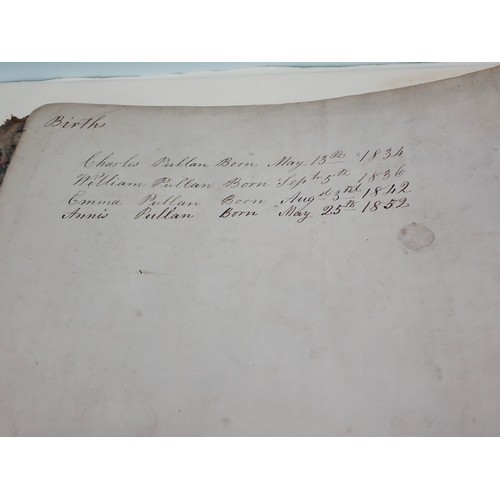 Births
Charles Pullan Born May 13th 1834
William Pullan Born Sept 5th 1836
Emma Pullan Born Augst 3rd 1842
Annis Pullan Born May 25th 1852